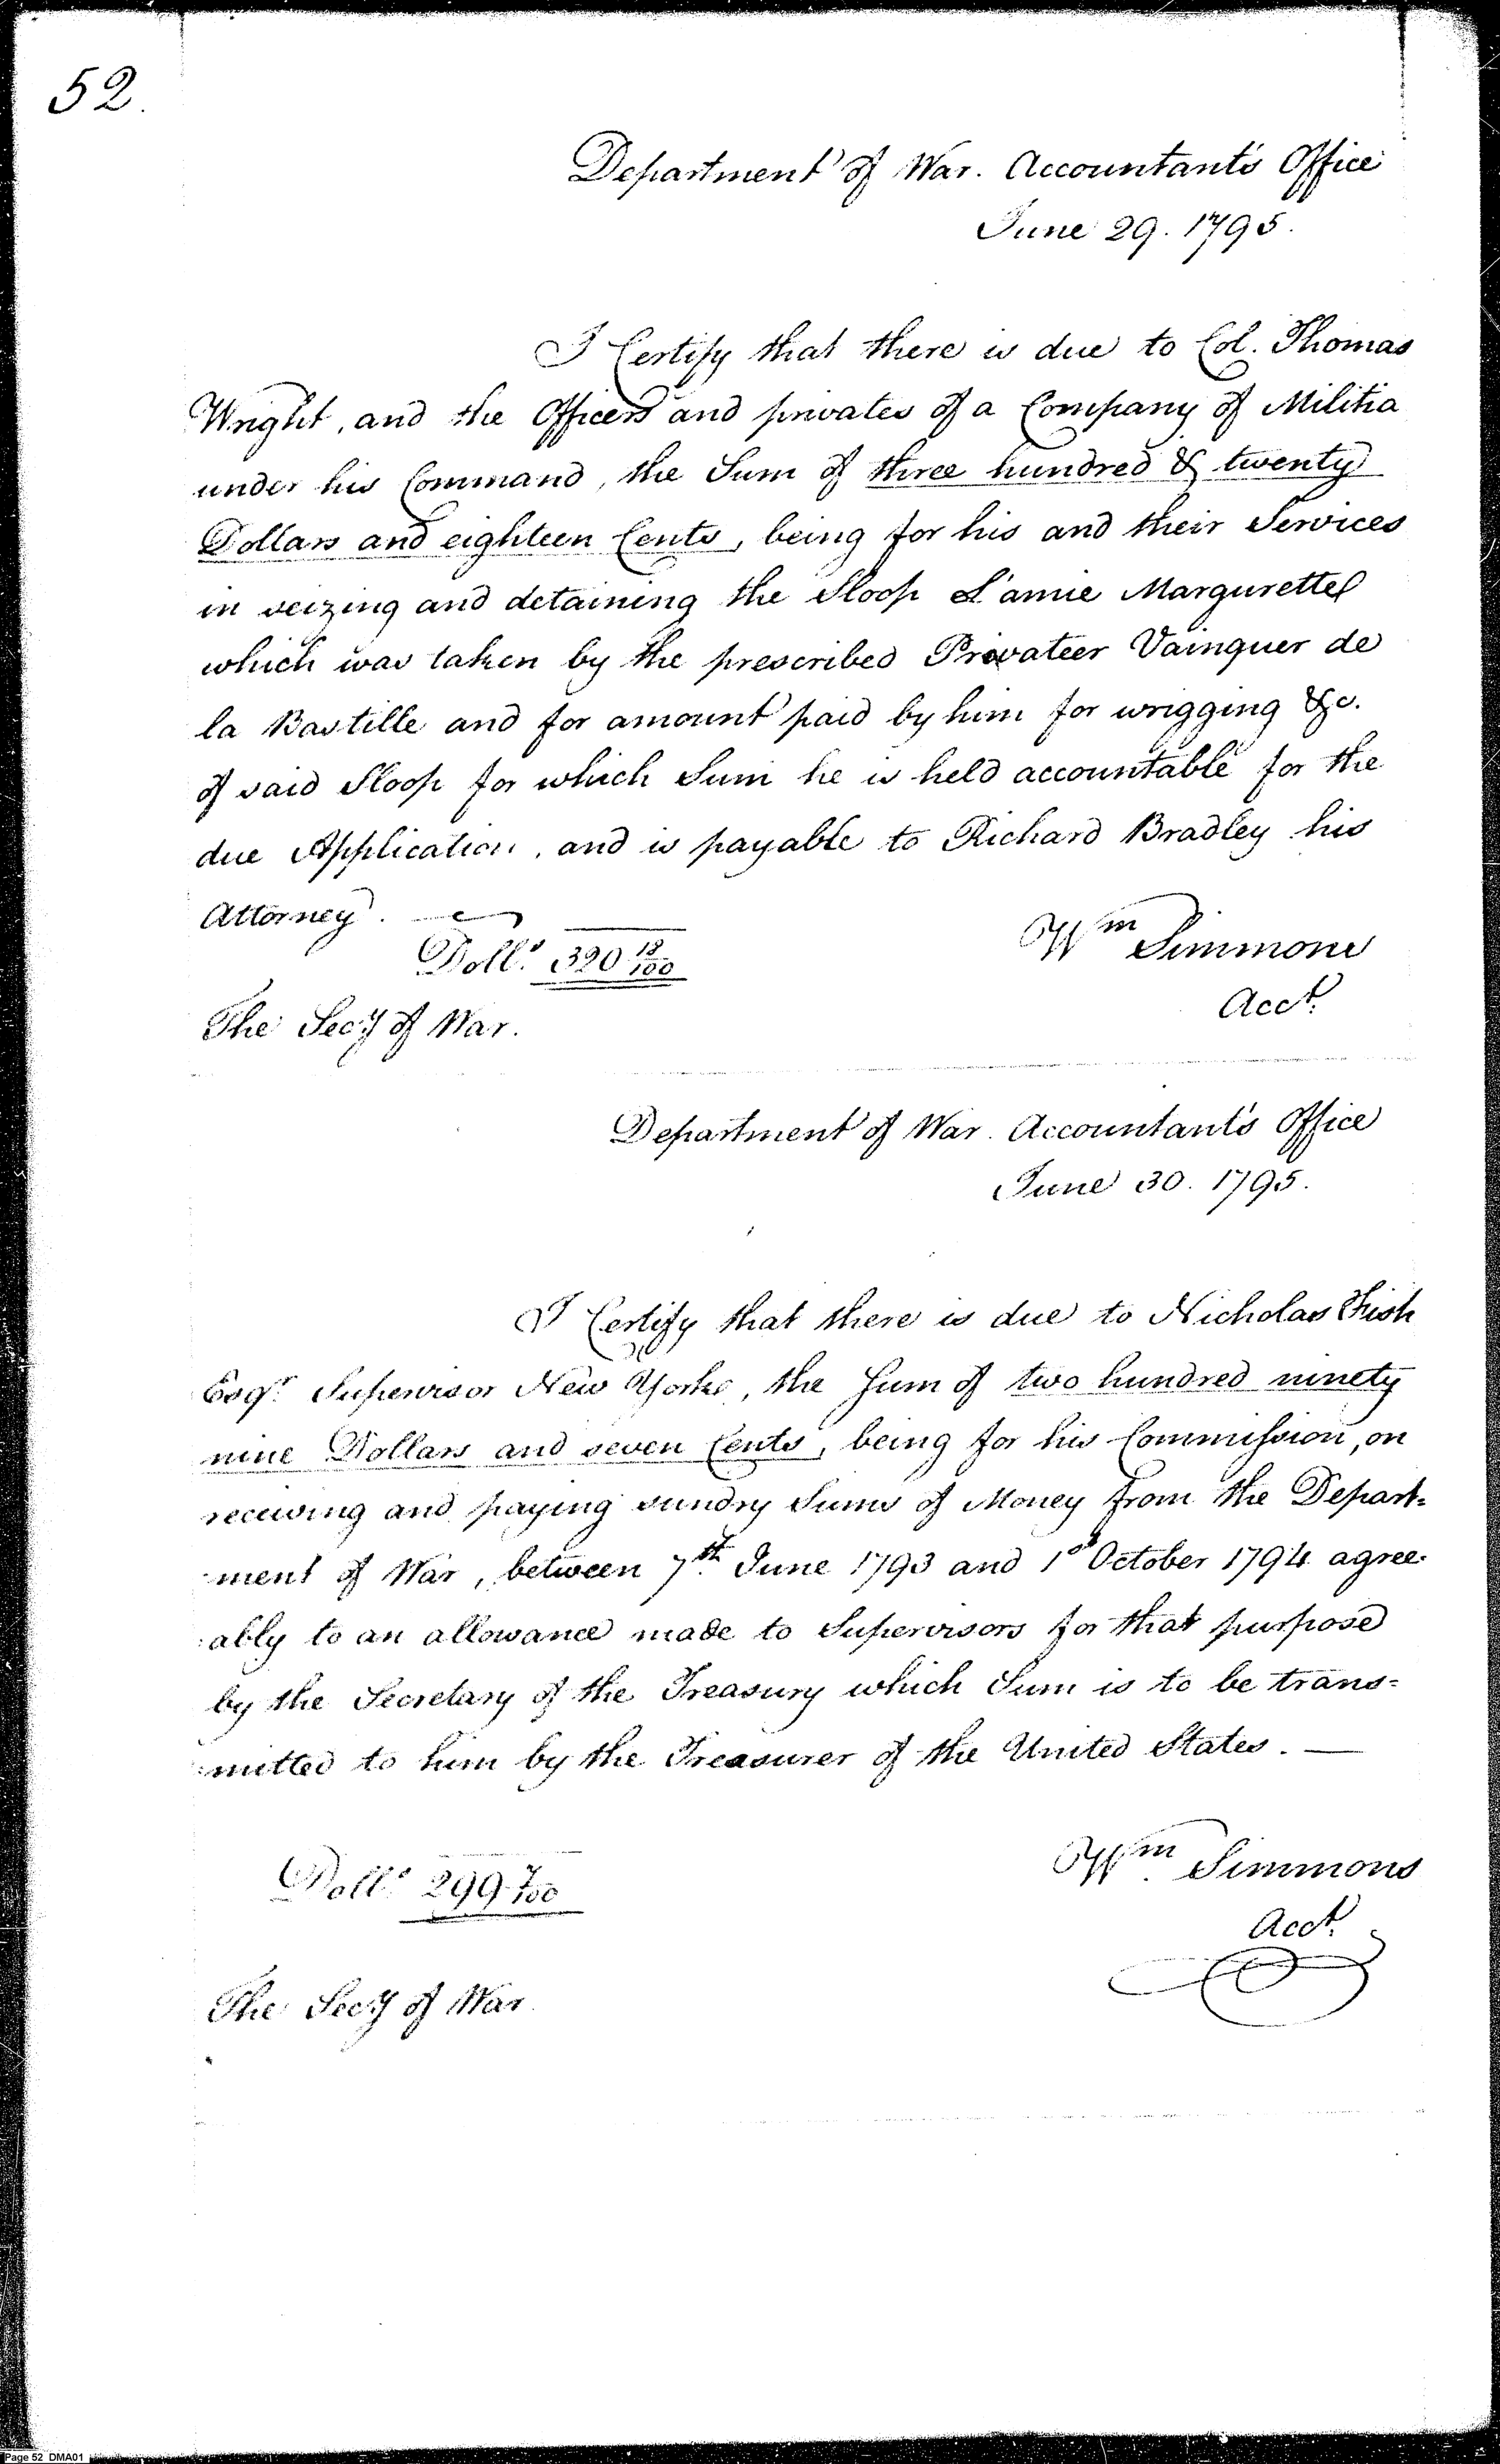 52.
Department of War. Accountant's Office
June 29. 1795.
I Certify that there is due to Col. Thomas
Wright, and the Officers and privates of a Company of Militia
under his Command, the Sum of three hundred & twenty
Dollars and eighteen Cents, being for his and their Services
in seizing and detaining the Sloop L'amie Margurette
which was taken by the prescribed Privateer Vainquer de
la Bastille and for amount paid by him for wrigging &c.
of said Sloop for which Sum he is held accountable for the
due Application, and is payable to Richard Bradley his
Attorney.
Dolls. 320 18/100
Wm Simmons
Acct.
The Secy of War.
Department of War. Accountant's Office
June 30. 1795.
I Certify that there is due to Nicholas Fish
Esqr. Supervisor New Yorke, the Sum of two hundred ninety
nine Dollars and seven Cents, being for his Commission, on
receiving and paying sundry Sums of Money from the Depart-
ment of War, between 7th June 1793 and 1st October 1794 agree-
ably to an allowance made to Supervisors for that purpose
by the Secretary of the Treasury which Sum is to be trans=
mitted to him by the Treasurer of the United States. —
Dolls. 299 7/100
Wm Simmons
Acct.
The Secy of War.
Page 52 DMA01